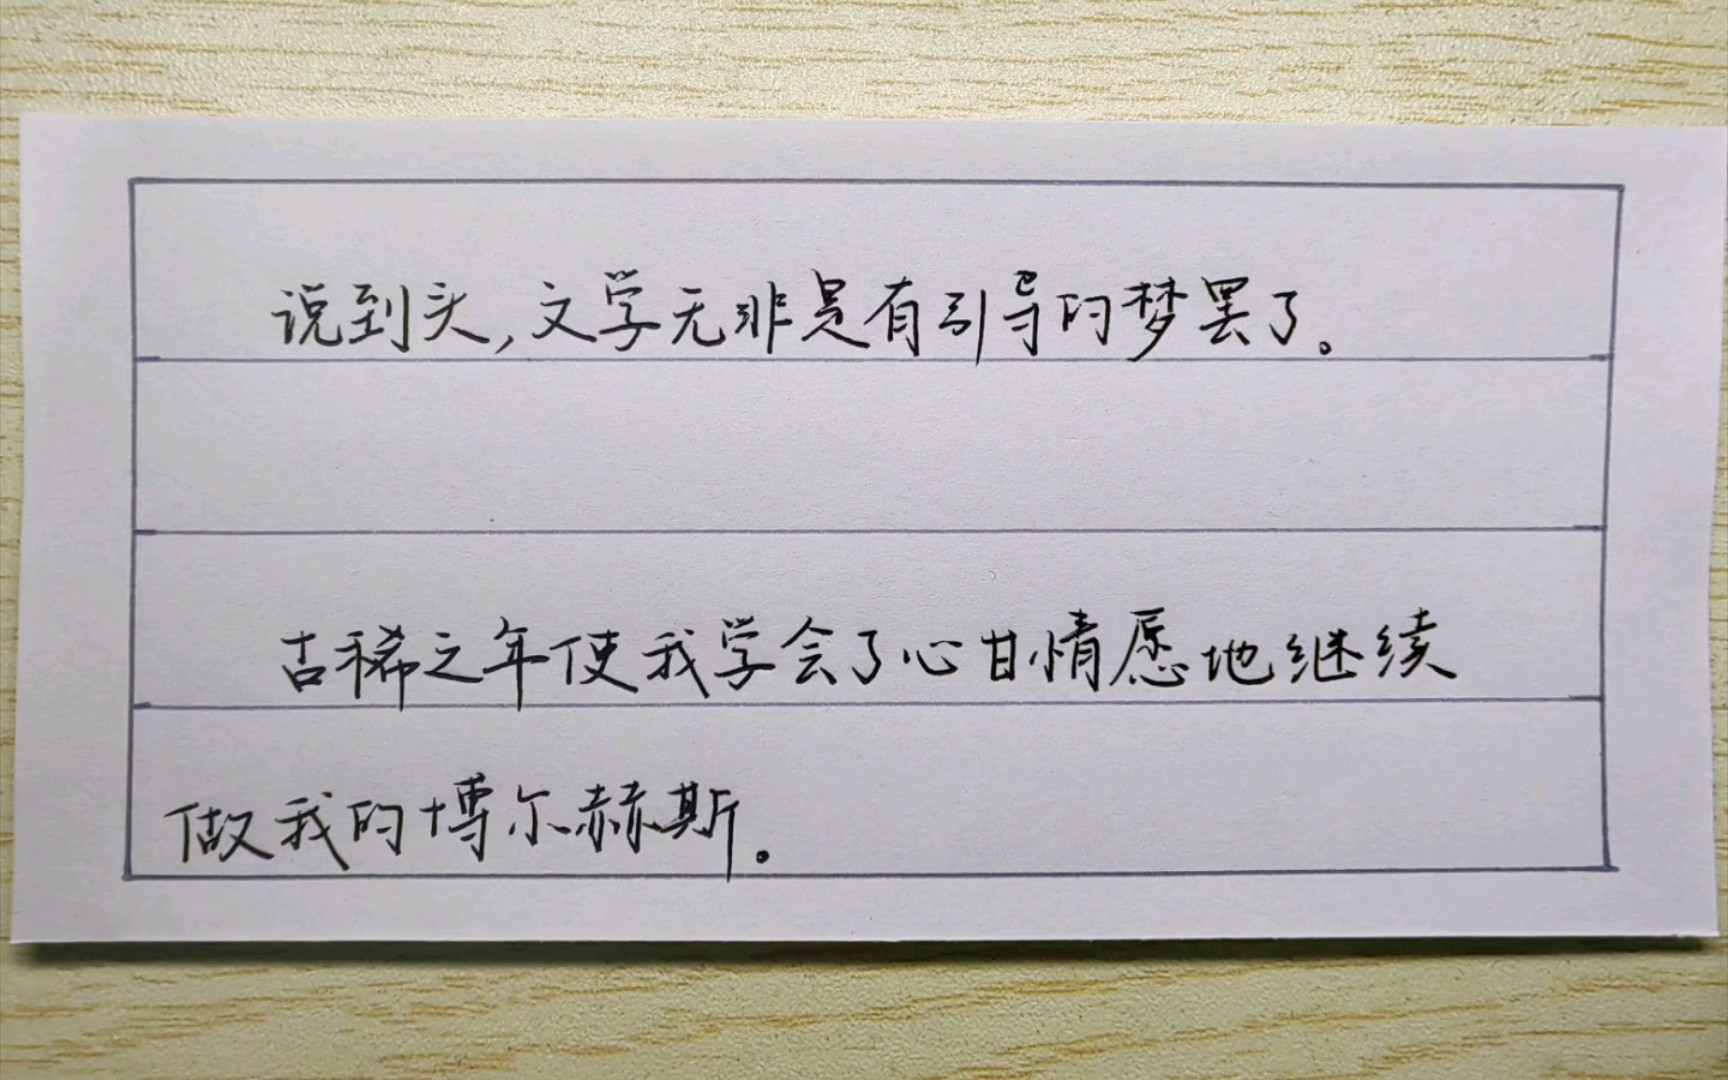 说到头,文学无非是有引导的梦罢了。
古稀之年使我学会了心甘情愿地继续
做我的博尔赫斯。